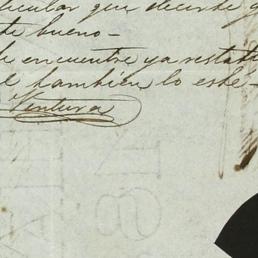 ticular que decirte q
te bueno-
le encuentre ya restab
e tambien lo esté-
Ventura